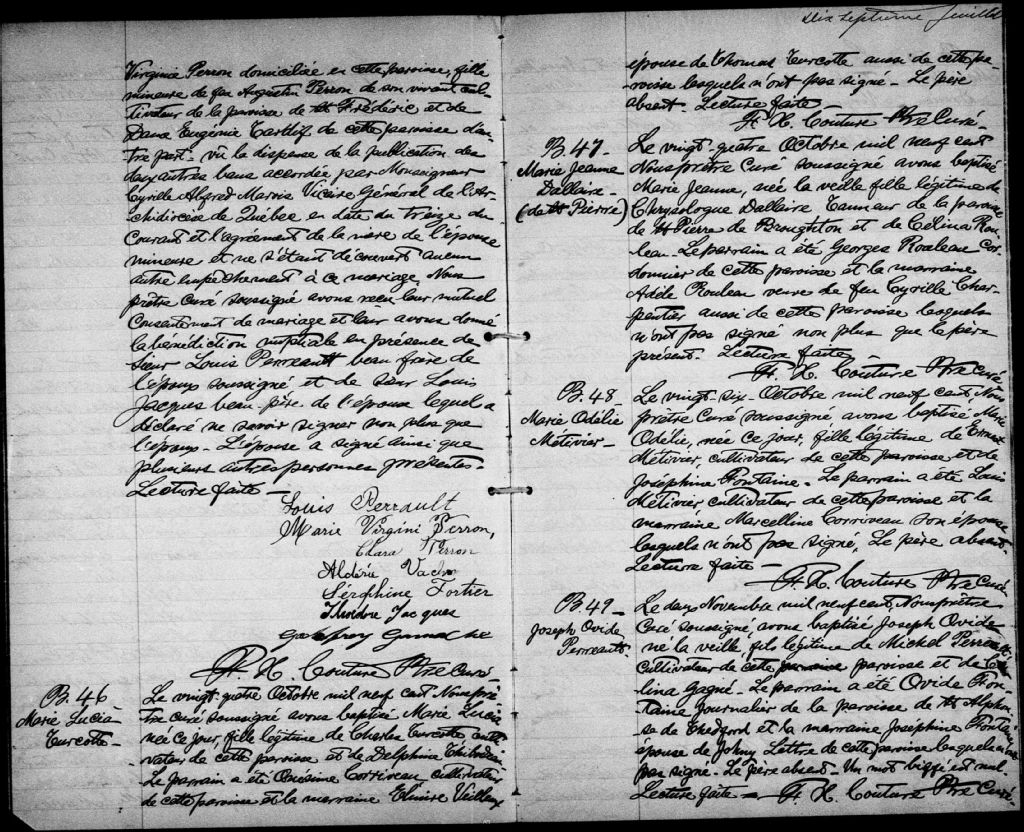 Virginie Perron domiciliée en cette paroisse, fille
mineure de feu Augustin Perron de son vivant cul-
tivateur de la paroisse de St Frédéric et de
Dame Eugénie Tardif de cette paroisse d'au-
tre part - vu la dispense de la publication des
deux autres bans accordée par Monseigneur
Cyrille Alfred Marois Vicaire Général de l'Ar-
chidiocèse de Québec en date du treize du
courant et l'agrément de la mère de l'épouse
mineure et ne s'étant découvert aucun
autre empêchement à ce mariage, Nous
prêtre curé soussigné avons reçu leur mutuel
consentement de mariage et leur avons donné
la bénédiction nuptiale en présence de
Sieur Louis Perreault beau frère de
l'époux soussigné et de sieur Louis
Jacques beau père de l'épouse lequel a
déclaré ne savoir signer non plus que
l'époux - L'épouse a signé ainsi que
plusieurs autres personnes présentes -
Lecture faite -
Louis Perrault
Marie Virgini Perron,
Clara Perron
Aldéric
Séraphine Fortier
Théodore Jacques
Godfroy
F. X. Couture Ptre Curé -
B. 46 -
Marie Lucia
Turcotte -
Le vingt-quatre Octobre mil neuf cent Nous prê-
tre curé soussigné avons baptisé Marie Lucia
née ce jour, fille légitime de Charles Turcotte culti-
vateur de cette paroisse et de Delphine Thibodeau
Le parrain a été Onésime Corriveau cultivateur
de cette paroisse et la marraine Elmire Veilleux
Dix septième feuillet
épouse de Thomas Turcotte aussi de cette pa-
roisse lesquels n'ont pas signé - Le père
absent - Lecture faite -
F. X. Couture Ptre Curé -
B 47 -
Marie Jeanne
Dallaire -
(de St Pierre)
Le vingt-quatre Octobre mil neuf cent
Nous prêtre Curé soussigné avons baptisé
Marie Jeanne, née la veille fille légitime de
Chrysologue Dallaire Tanneur de la paroisse
de St Pierre de Broughton et de Célina Rou-
leau - Le parrain a été Georges Rouleau cor-
donnier de cette paroisse et la marraine
Adèle Rouleau veuve de feu Cyrille Char-
pentier aussi de cette paroisse lesquels
n'ont pas signé non plus que le père
présent - Lecture faite -
F. X. Couture Ptre Curé
B. 48 -
Marie Odélie
Métivier -
Le vingt-six Octobre mil neuf cent Nous
Prêtre Curé soussigné avons baptisé Marie
Odélie, née ce jour, fille légitime de Ernest
Métivier, cultivateur de cette paroisse et de
Joséphine Fontaine - Le parrain a été Louis
Métivier, cultivateur de cette paroisse et la
marraine Marcelline Corriveau son épouse
lesquels n'ont pas signé, Le père absent
Lecture faite -
F. X. Couture Ptre Curé
B 49 -
Joseph Ovide
Perreault.
Le deux Novembre mil neuf cent, Nous prêtre
Curé soussigné, avons baptisé Joseph Ovide
né la veille, fils légitime de Michel Perreault
cultivateur de cette paroisse paroisse et de
lina Gagné - Le parrain a été Ovide Fon-
taine Journalier de la paroisse de St Alphon-
se de Thedford et la marraine Joséphine Fontaine
épouse de Johny Lettre de cette paroisse lesquels n'ont
pas signé - Le père absent - Un mot biffé est nul -
Lecture faite - F. X. Couture Ptre Curé -